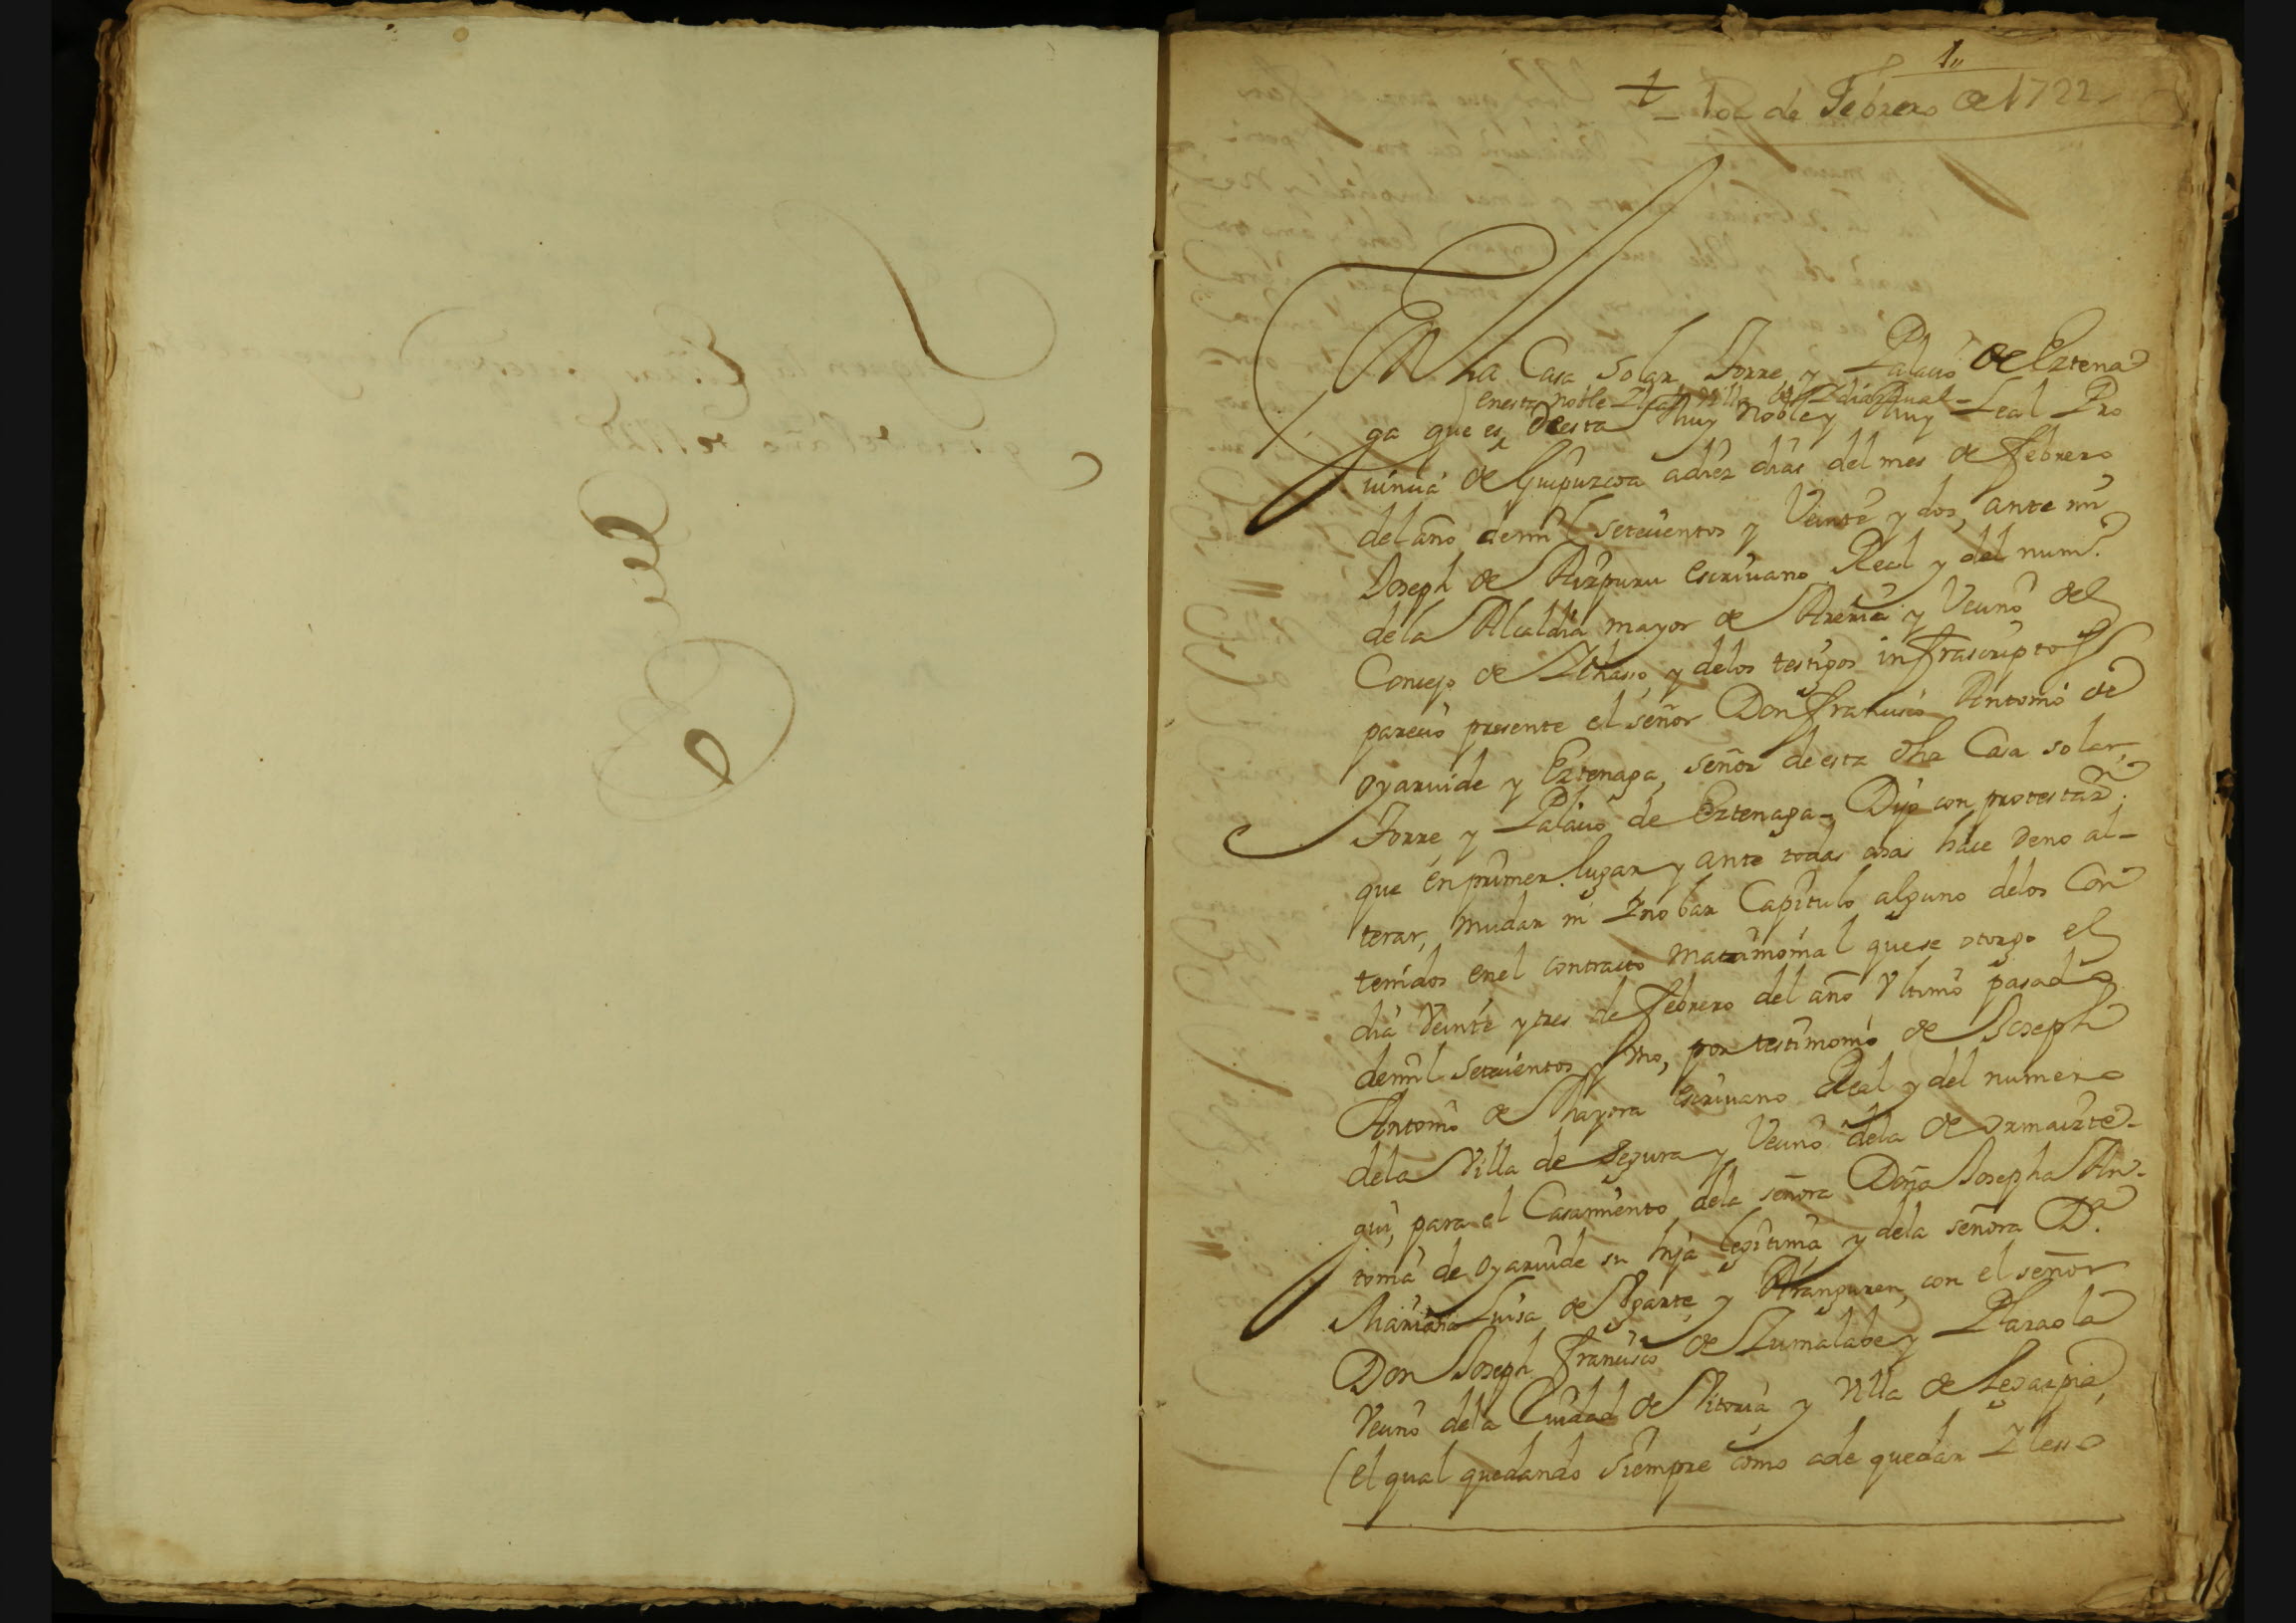 1
10 de Febrero de 1722
En la Casa Solar, Torre, y Palacio de Eztena
en esta Noble y Leal Villa de Ydiazaual
ga que es de esta Muy Noble y Muy Leal Pro
uincia de Guipuzcoa a diez dias del mes de Febrero
del año de mil setecientos y Veinte y dos, ante mi
Joseph de Aizpuru escriuano Real y del num.º
de la Alcaldia mayor de Areria y Vecino del
Concejo de Ichasso, y de los testigos infrascriptos
parecio presente el señor Don Francisco Antonio de
oyaruide y Eztenaga, señor de esta dha Casa solar,
Torre, y Palacio de Eztenaga, Dijo con protestaz.n
que en primer lugar y ante todas cosas hace de no al-
terar, mudar ni Ynobar Capitulo alguno de los Con
tenidos en el contracto matrimonial que se otorgo el
dia Veinte y tres de Febrero del año Vltimo pasado
de mil setecientos y Vno, por testimonio de Joseph
Antonio de Mayora escriuano Real y del numero
de la Villa de Segura y Vecino de la de ormaizte-
gui, para el Casamiento de la señora Doña Josepha An-
tonia de oyaruide su hija legitima y de la señora D.ª
Mariana Luisa de Vgarte y Aranguren, con el señor
Don Joseph Francisco de Zumalabe y Plazaola
Vecino de la Ciudad de Vitoria y Villa de Legazpia,
(el qual quedando siempre como a de quedar Yleso